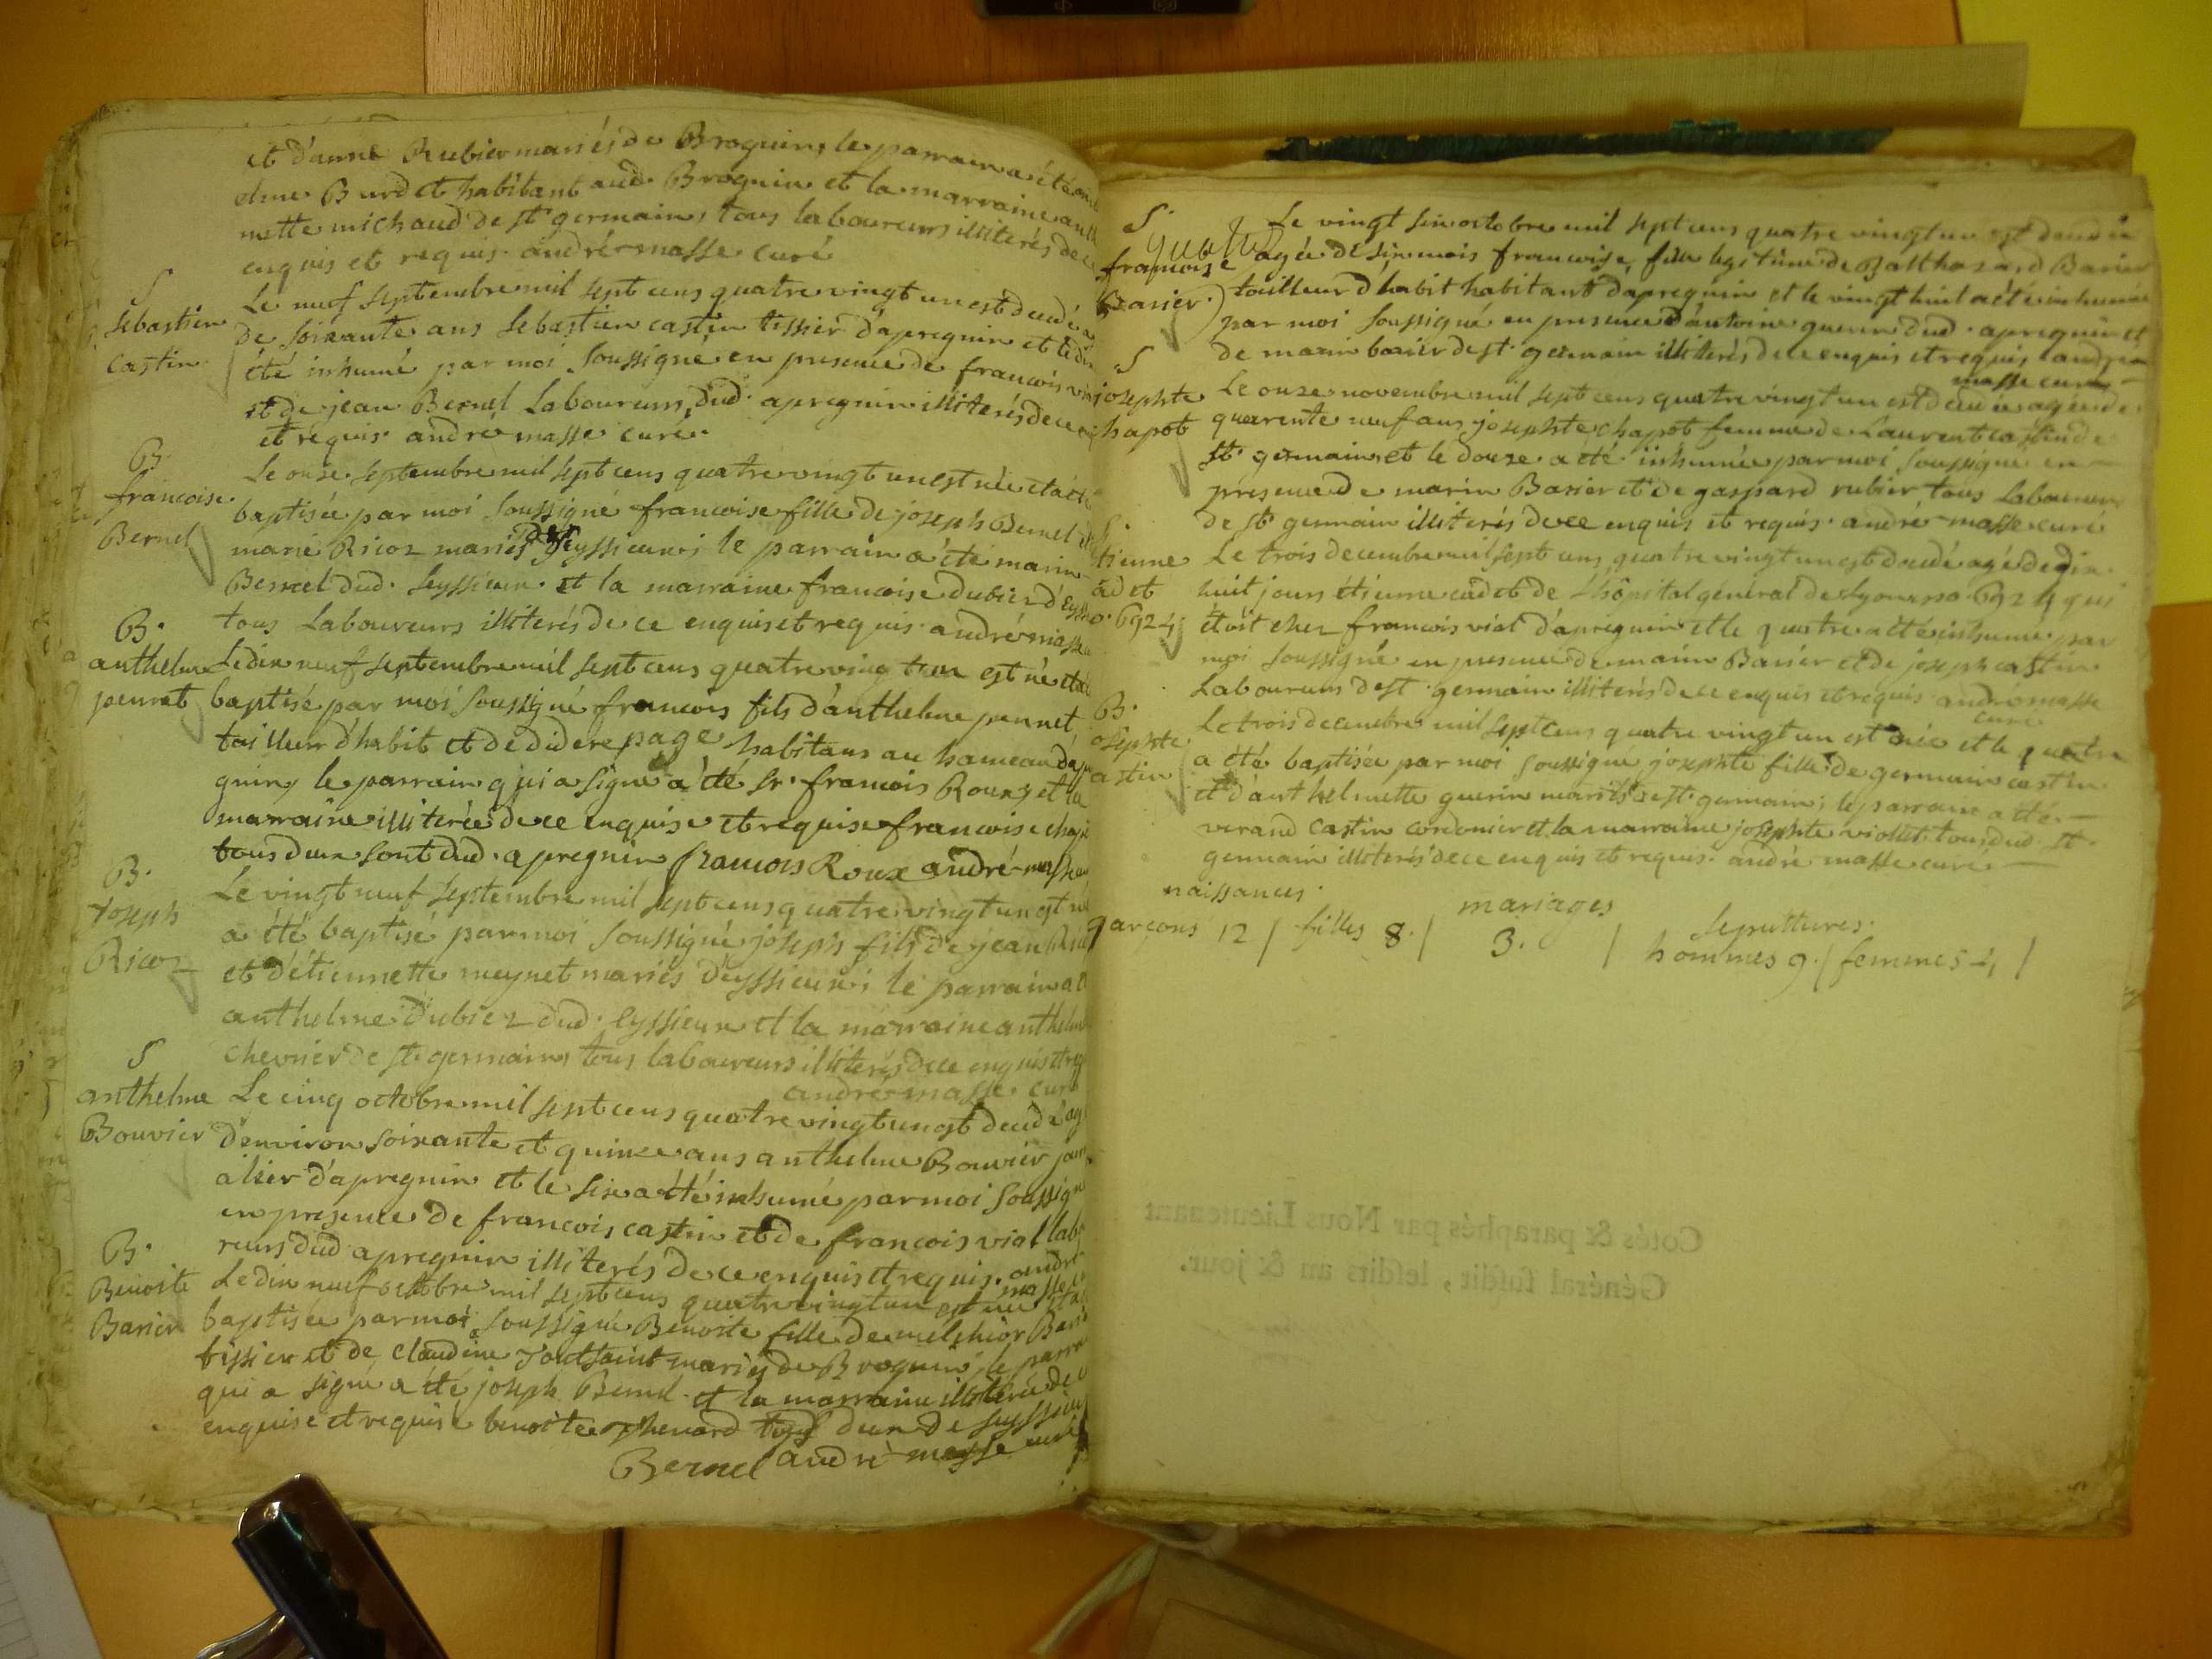 et d'anne Rubier mariés de Brognin, le parrain a été
elme Burdet habitant aud. Brognin et la marraine
mette michaud de st germain, tous laboureurs illiterés de
enquis et requis. andré masse curé
S
sebastien
castin
Le neuf septembre mil sept cens quatre vingt un est decedé
de soixante ans sebastien castin tissier d'apregnin et le
été inhumé par moi soussigné en presence de francois
et de jean Bernel Laboureurs dud. apregnin illiterés de ce
et requis. andré masse curé.
B.
francoise
Bernel
Le onze septembre mil sept cens quatre vingt un est née et a
baptisée par moi soussigné francoise fille de joseph Bernel
marie Ricoz mariés le parrain a été marin
Bernel dud. Seyssieux et la marraine francoise dubiez
tous Laboureurs illiterés de ce enquis et requis. andré masse
B.
anthelme
pennet
Le dix neuf septembre mil sept cens quatre vingt un est né et
baptisé par moi soussigné francois fils d'anthelme pennet
tailleur d'habit et de didere page habitans au hameau
gnin, le parrain qui a signé a été sr. francois Roux et la
marraine illiterée de ce enquise et requise francoise
tous deux sont dud. apregnin francois Roux andré masse
B.
Joseph
Ricoz
Le vingt neuf septembre mil sept cens quatre vingt un est né
a été baptisé par moi soussigné joseph fils de jean
et d'étiennette meynet mariés d'eyssieux; le parrain a
anthelme dubiez dud. eyssieux et la marraine
chevrier de st. germain, tous laboureurs illiterés de ce enquis et
andré masse curé
S
anthelme
Bouvier
Le cinq octobre mil sept cens quatre vingt un est decedé
d'environ soixante et quinze ans anthelme Bouvier
alier d'apregnin et le six a été inhumé par moi
en presence de francois castin et de francois viol
reurs dud apregnin illiterés de ce enquis et requis. andré
masse
B.
Benoite
Barier
Le dix neuf octobre mil sept cens quatre vingt un est née
baptisée par moi soussigné Benoite fille de melchior
tissier et de claudine Toutsaint mariés de Brognin, le
qui a signé a été joseph Bernel et la marraine illiterée de
enquise et requise benoite thenard tous deux de
Bernel andré masse curé
S.
francoise
Barier
Le vingt six octobre mil sept cens quatre vingt un est decedée
agée de six mois francoise fille legitime de Balthazard Barier
tailleur d'habit habitant d'apregnin et le vingt huit a été inhumée
par moi soussigné en presence d'antoine guerin dud. apregnin et
de marin barier de st. germain illiterés de ce enquis et requis andré
masse curé
S
josephte
chapot
Le onze novembre mil sept cens quatre vingt un est decedée agée de
quarente neuf ans josephte chapot femme de Laurent castin de
st. germain et le douze a été inhumée par moi soussigné en
presence de marin Barier et de gaspard rubier tous Laboureurs
de st germain illiterés de ce enquis et requis. andré masse curé
tienne
adet
o. 6924
Le trois decembre mil sept cens quatre vingt un est decedé agé de dix
huit jours étienne cadet de l'hôpital général de Lyon no. 6924 qui
étoit chez francois viol d'apregnin et le quatre a été inhumé par
moi soussigné en presence de marin Barier et de joseph castin
Laboureurs de st. germain illiterés de ce enquis et requis. andré masse
curé
B.
osephte
astin
Le trois decembre mil sept cens quatre vingt un est née et le quatre
a été baptisée par moi soussigné josephte fille de germain castin
et d'anthelmette guerin mariés de st. germain; le parrain a été
verand castin cordonier et la marraine josephte viollet tous dud. st.
germain illiterés de ce enquis et requis. andré masse curé
naissances. mariages sepultures.
garçons 12 / filles 8. / 3. / hommes 9. / femmes 4 /
Cotés & paraphés par Nous Lieutenant
Général susdit, lesdits an & jour.